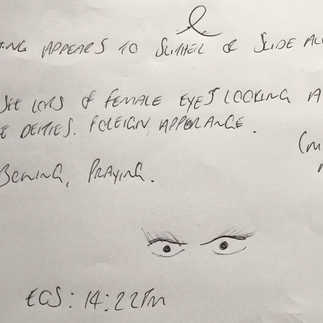 ING APPEARS TO SLITHEL & SLIDE AL
SEE LOTS OF FEMALE EYES LOOKING A
E DEITIES. FOREIGN APPERANCE.
(M
BOWING, PRAYING.
EGS: 14:22PM